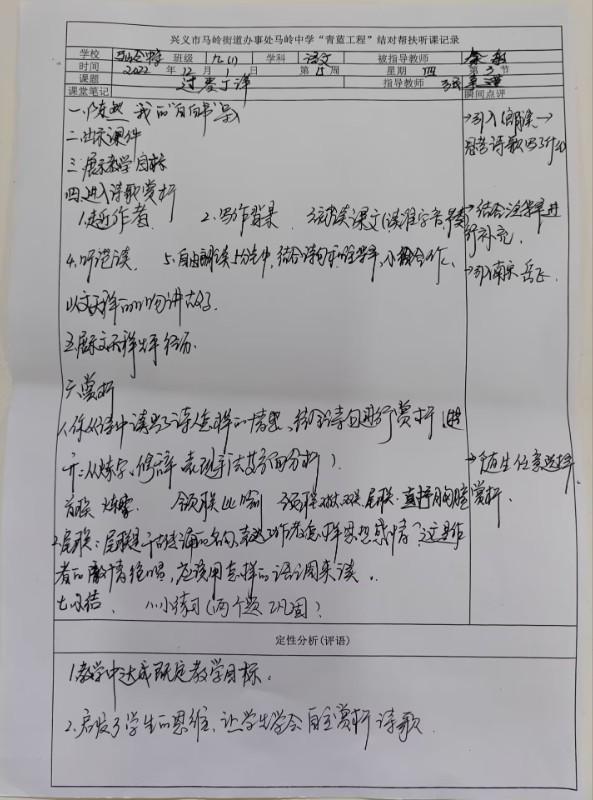 兴义市马岭街道办事处马岭中学“青蓝工程”结对帮扶听课记录
学校 马岭中学 班级 九(1) 学科 语文 被指导教师
时间 2022 年 12 月 1 日 第 15 周 星期 四 第 3 节
课题 过零丁洋 指导教师
课堂笔记 瞬间点评
我的自白书 导入
二、出示课件
三、展示教学目标
四、进入诗歌赏析
1.走近作者 2.写作背景 课文(读准字音、节奏)
→结合注释并进行补充
4.听范读 5.自由朗读5分钟,结合诗句 小组合作
→引入南宋岳飞
五、展示文天祥生平经历
六、赏析
1.你从诗中读出了诗人怎样的情感,结合诗句进行赏析(
从炼字、修辞、表现手法等方面分析)
→随生任意选择
首联 颔联 比喻 颈联 尾联:直抒胸臆 赏析
2.尾联:尾联是千古传诵的名句,表达了作者怎样思想感情?这是作
者的 绝唱,应该用怎样的语调来读。
七、小结 八、小练习(两个题 巩固)
定性分析(评语)
1.教学中达成既定教学目标。
2.启发了学生的思维,让学生学会自主赏析诗歌